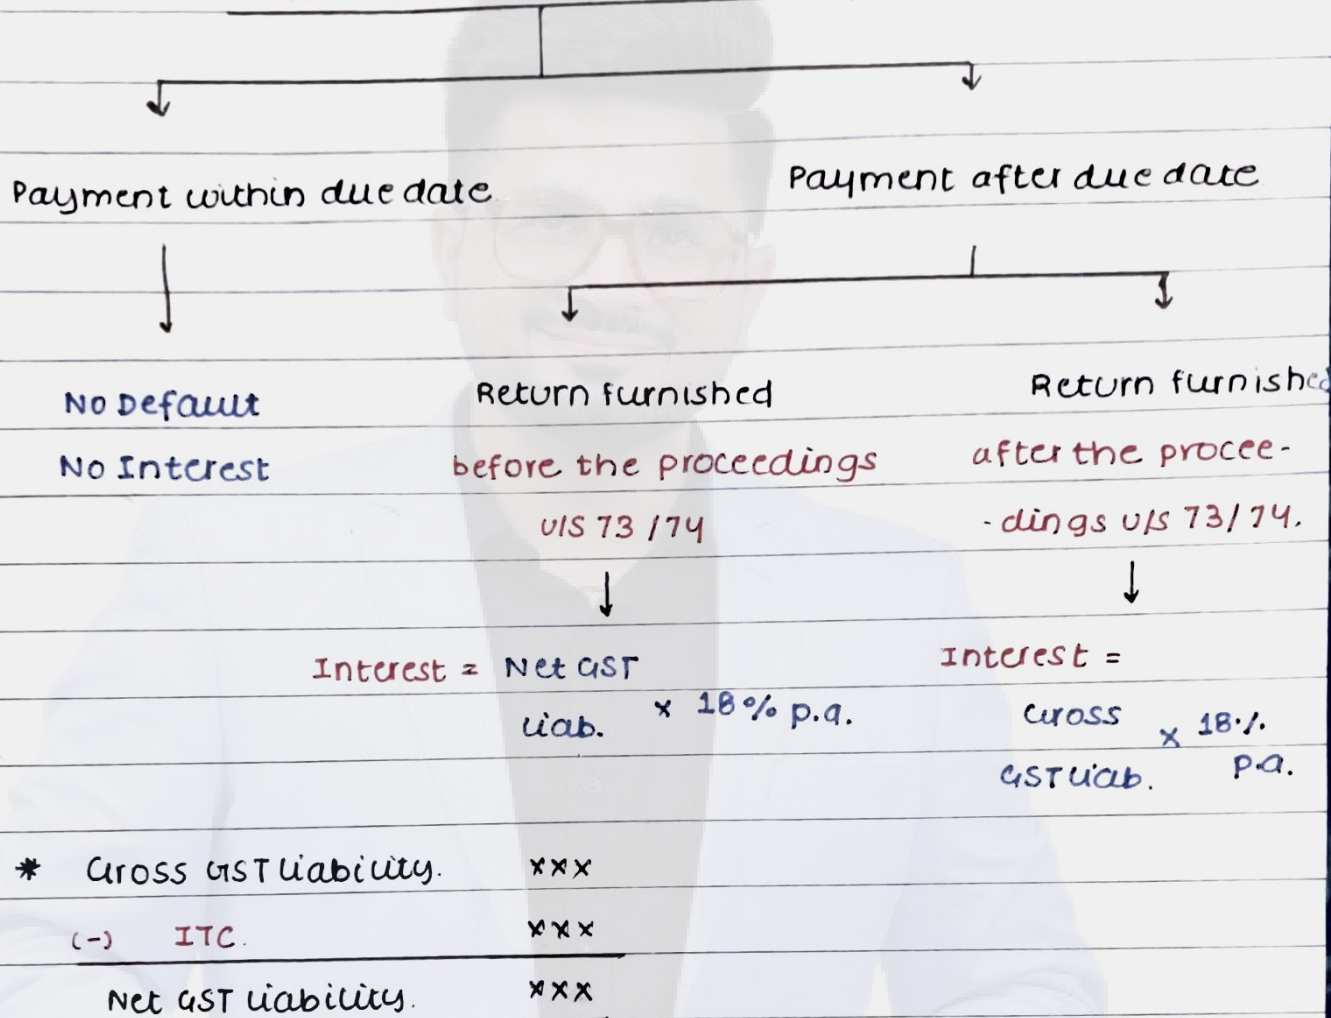 Payment within due date
Payment after due date
No Default
No Interest
Return furnished
before the proceedings
u/s 73 / 74
Return furnished
after the procee-
-dings u/s 73/74.
Interest = Net GST
liab. × 18% p.a.
Interest =
Gross
GST liab. × 18%
p.a.
* Gross GST liability. xxx
(-) ITC. xxx
Net GST liability. xxx